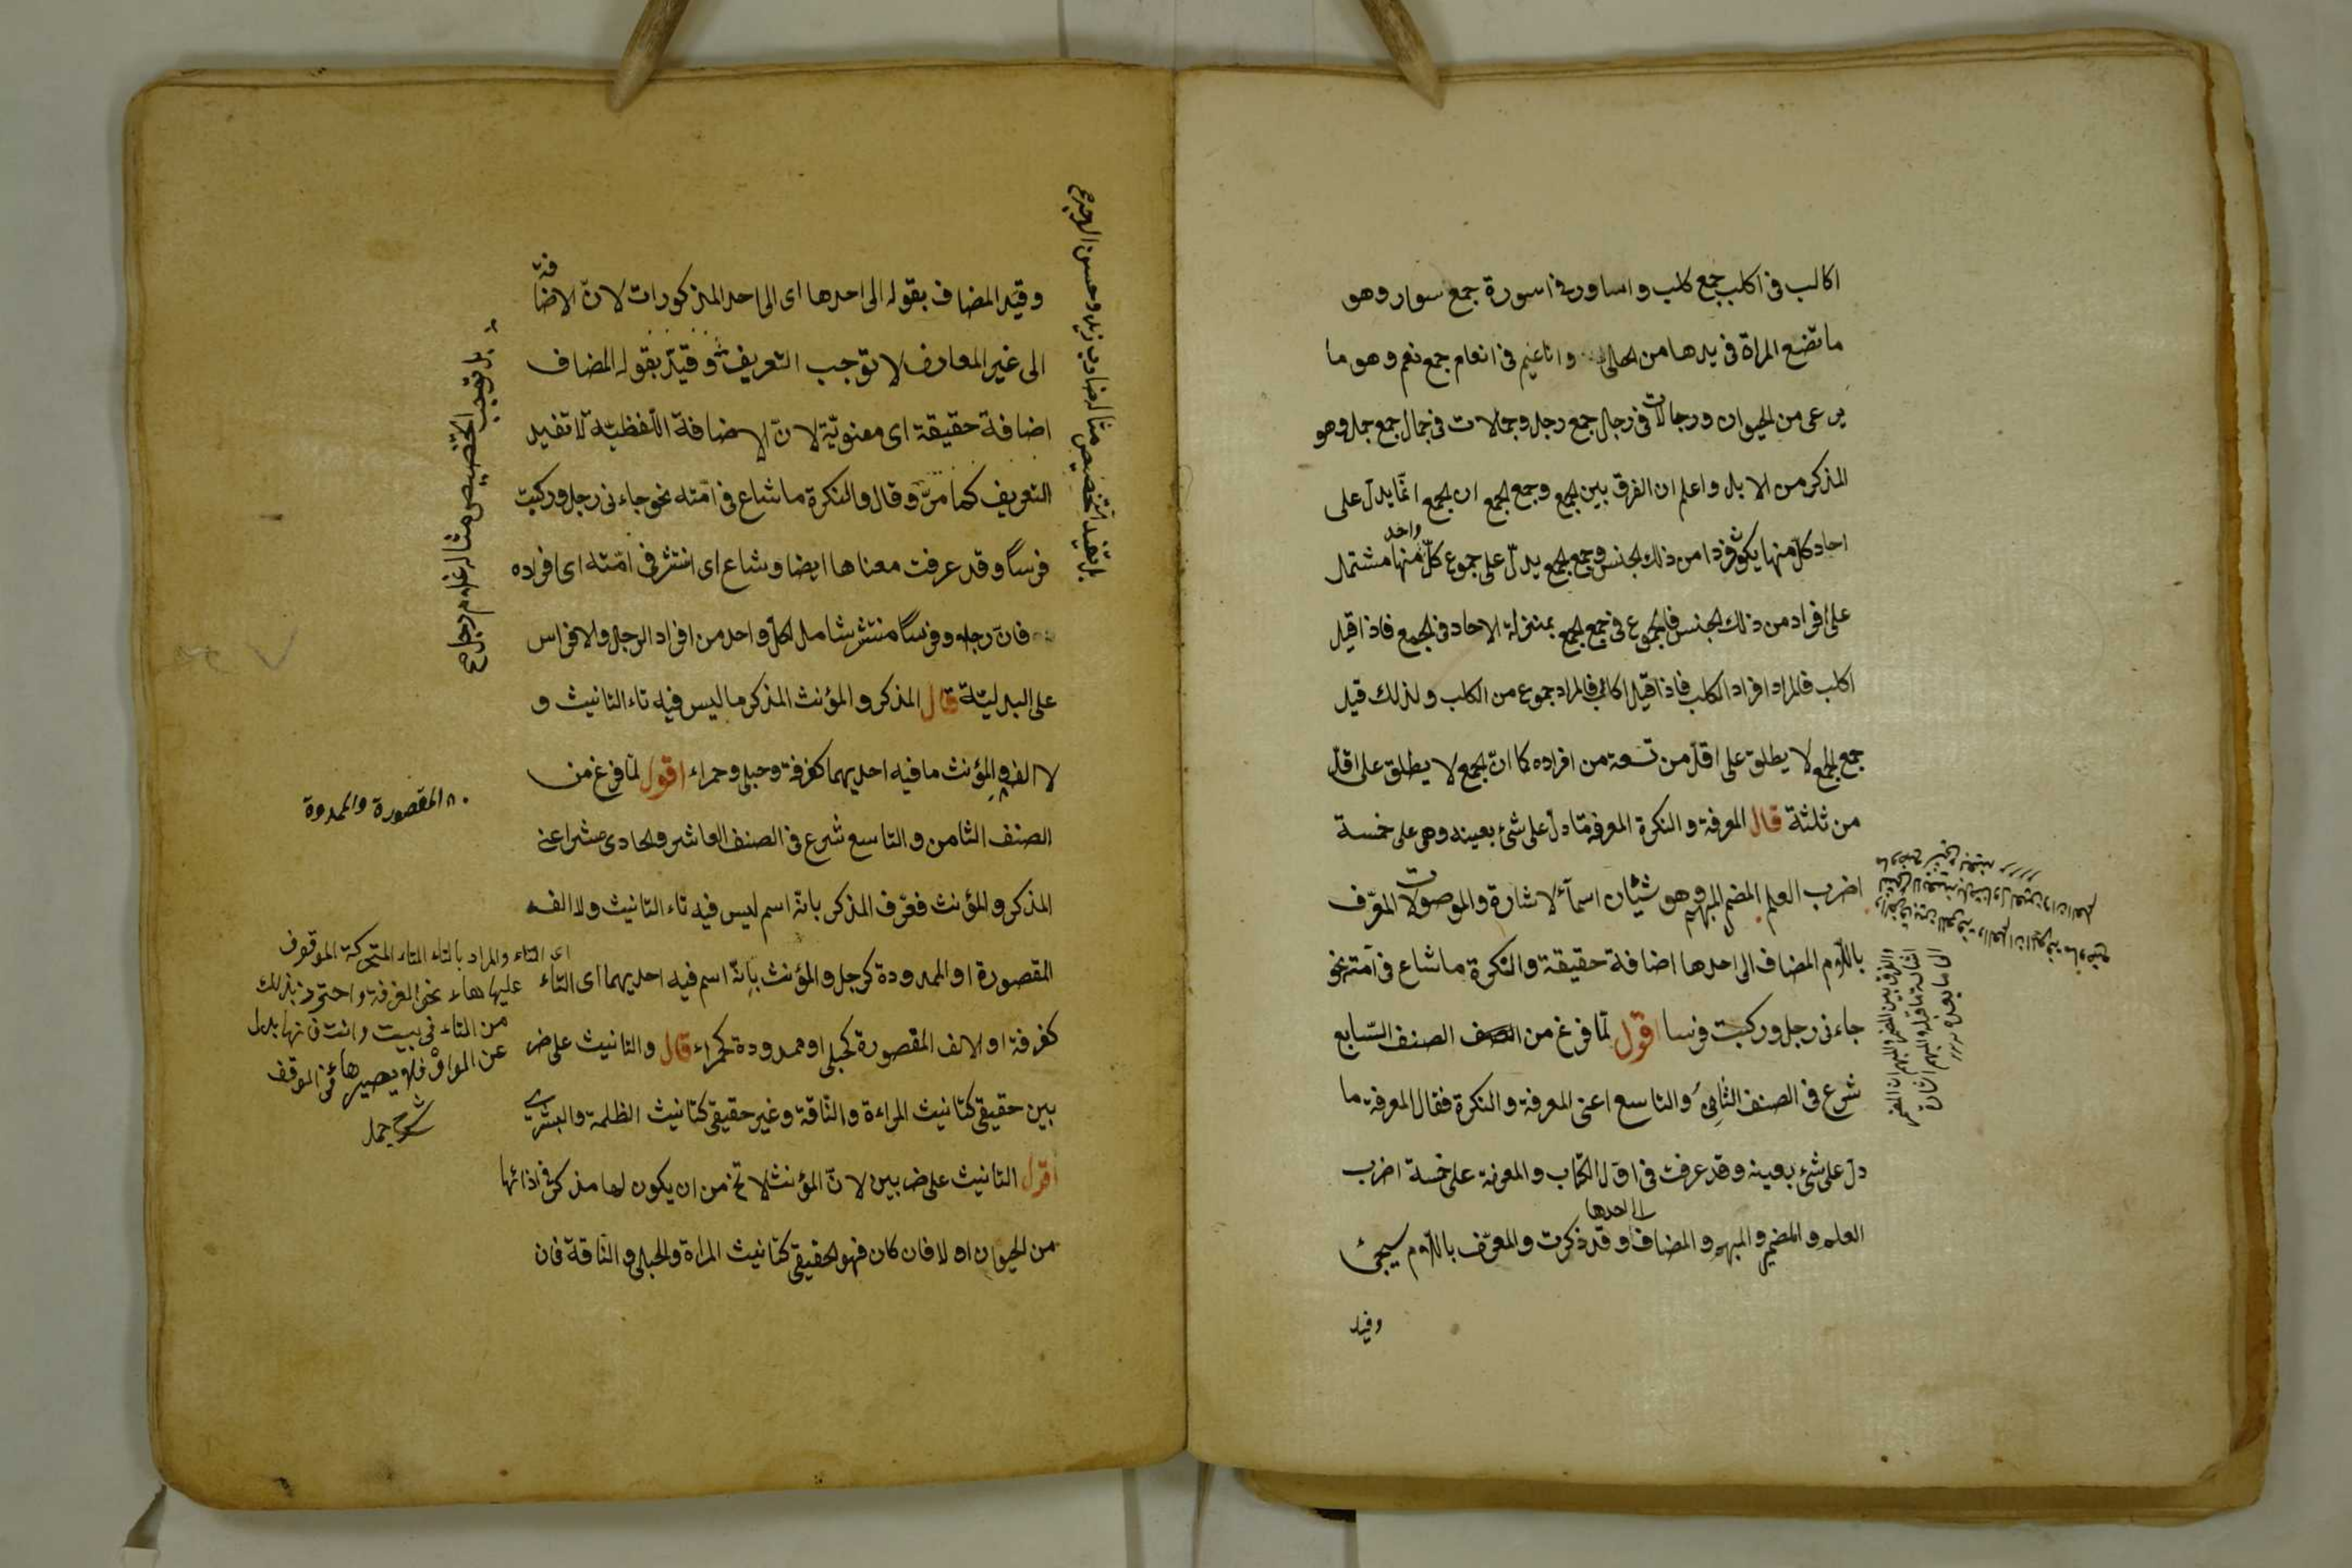 اكالب فى اكلب جمع كلب و اساور فى اسورة جمع سوار وهو
ما تضع المراة فى يدها من الحلى و اناعيم فى انعام جمع نعم و هو ما
يرعى من الحيوان و رجالات فى رجال جمع رجل و جمالات فى جمال جمع جمل وهو
المذكر من الابل و اعلم ان الفرق بين الجمع وجمع الجمع ان الجمع انّما يدلّ على
احاد كلّ منها يكون فردا من ذلك الجنس وجمع الجمع يدلّ على جموع كلّ واحد منها مشتمل
على افراد من ذلك الجنس فالجموع فى جمع الجمع بمنزلة الاحاد فى الجمع فاذا قيل
اكلب فالمراد افراد الكلب فاذا قيل اكالب فالمراد جموع من الكلب و لذلك قيل
جمع الجمع لا يطلق على اقلّ من تسعة من افراده كما انّ الجمع لا يطلق على اقلّ
من ثلثة قال المعرفة و النكرة المعرفة ما دلّ على شئ بعينه وهى على خمسة
اضرب العلم المضمر المبهم وهو شيئان اسمآء الاشارة والموصولات المعرّف
باللّام المضاف الى احدها اضافة حقيقة و النكرة ما شاع فى امّته نحو
جاءنى رجل و ركبت فرسا اقول لمّا فرغ من الصف الصنف السّابع
شرع فى الصنف الثامن و التاسع اعنى المعرفة و النكرة فقال المعرفة ما
دلّ على شئ بعينه و قد عرفت فى اوّل الكتاب و المعرفة على خمسة اضرب
العلم و المضمر و المبهم و المضاف الى احدها و قد ذكرت و المعرّف باللّام سيجئ
وقيد
والفرق بين المضمر والمبهم ان المضمر
اشارة ما قبله والمبهم اشارة
الى ما بعده
وقيّد المضاف بقوله الى احدها اى الى احد المذكورات لانّ الاضافة
الى غير المعارف لا توجب التعريف و قيّد بقوله المضاف
اضافة حقيقة اى معنويّة لانّ الاضافة اللّفظيّة لا تفيد
التعريف كما مرّ و قال و النكرة ما شاع فى امّته نحو جاءنى رجل و ركبت
فرسًا و قد عرفت معناها ايضا و شاع اى انتشر فى امّته اى افراده
فانّ رجلا و فرسًا منتشر شامل لكلّ واحد من افراد الرجل و الافراس
على البدليّة قال المذكر و المؤنث المذكر ما ليس فيه تاء التانيث و
لا الف و المؤنث ما فيه احديهما كغرفة و حبلى و حمراء اقول لمّا فرغ من
الصنف الثامن و التاسع شرع فى الصنف العاشر و الحادى عشر اعنى
المذكر و المؤنث فعرّف المذكر بانّه اسم ليس فيه تاء التانيث و لا الف
المقصورة او الممدودة كرجل و المؤنث بانّه اسم فيه احديهما اى التاء
كغرفة او الالف المقصورة كحبلى او ممدودة كحمراء قال و التانيث على ضر
بين حقيقى كتانيث المراءة و النّاقة و غير حقيقى كتانيث الظلمة و البشرى
اقول التانيث على ضربين لانّ المؤنث لا تخ من ان يكون لها مذكر فى اذائها
من الحيوان او لا فان كان فهو الحقيقى كتانيث المراة و الحبلى و النّاقة فان
بل تفيد التخصيص مثال ضارب زيد و حسن الوجه ع
بل توجب التخصيص مثال غلام رجل ع
المقصورة والممدوة
اى التاء والمراد بالتاء التاء المتحركة الموقوف
عليها هاء نحو الغرفة و احترز بذلك
من التاء فى بيت و انت فانها بدل
عن الواو فلا يصير هاء فى الوقف
شرح جمل